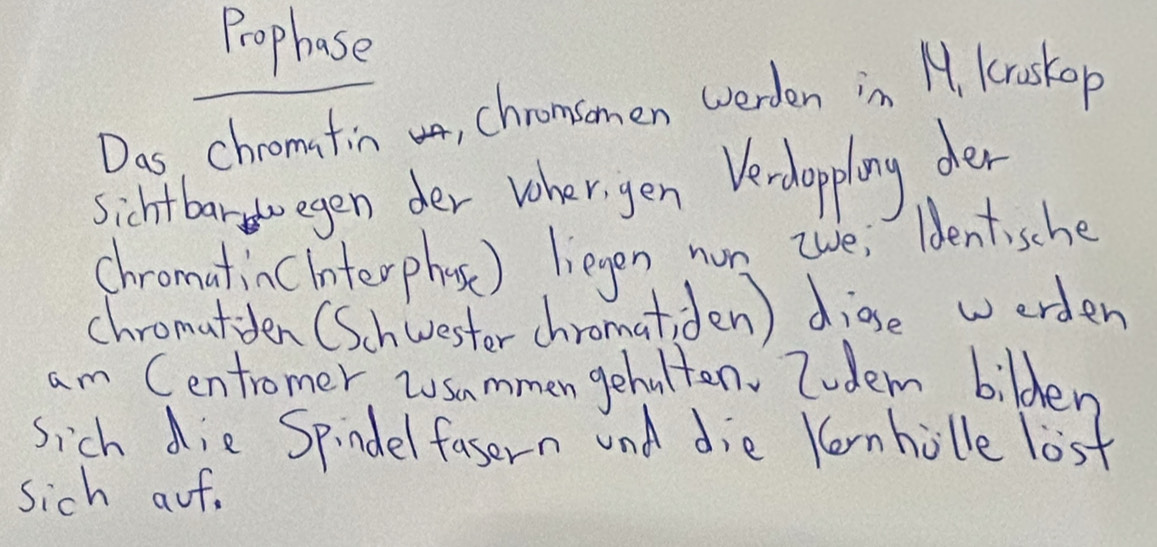 Prophase
Das chromatin, chromsomen werden in Mikroskop
sichtbar, wegen der voherigen Verdopplung der
Chromatin (Interphase) liegen nun zwei Identische
chromatiden (Schwesterchromatiden) diese werden
am Centromer zusammengehalten. Zudem bilden
sich die Spindelfasern und die Kernhülle löst
sich auf.